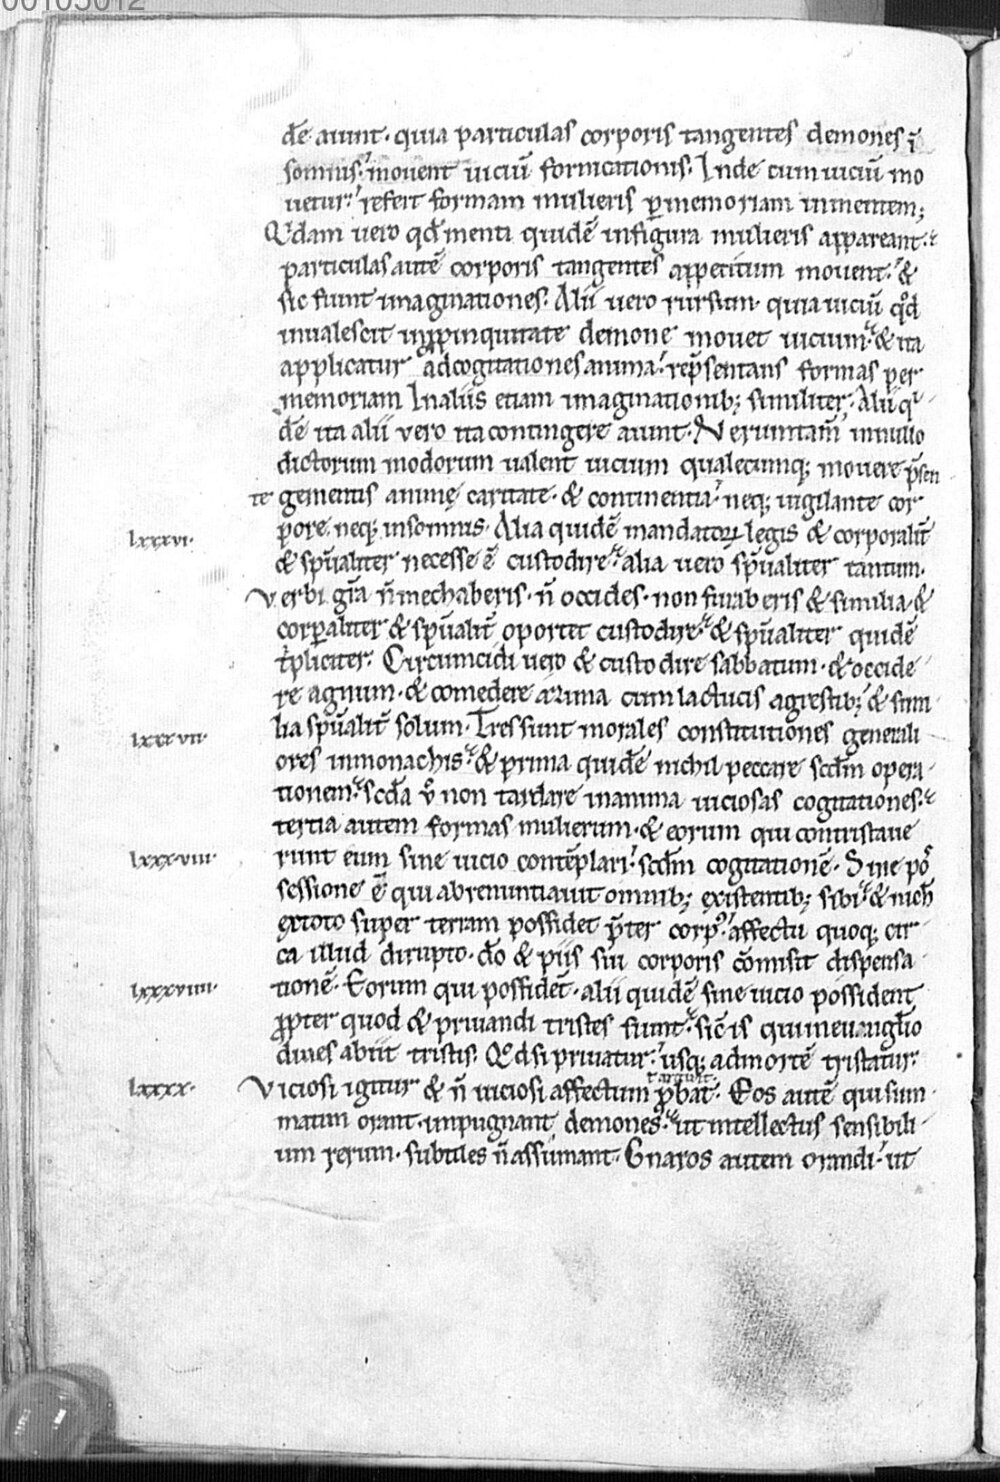 00105012
dē aiunt· quia particulas corporis tangentes demones ī
somnis: mouent uiciū fornicationis. Inde cum uiciū mo
uetur: refert formam mulieris ꝑ memoriam in mentem;
Qdam uero qđ menti quidē in figura mulieris appareant:
particulas autē corporis tangentes appetitum mouent: &
sic fiunt imaginationes. Alii uero rursum quia uiciū qđ
inualescit in ꝓpinquitate demone mouet uicium: & ita
applicatur ad cogitationes anima: rep̄sentans formas per
memoriam In aliis etiam imaginationib; similiter. Alii q̇
dē ita alii vero ita contingere aiunt. Veruntam̄ in nullo
dictorum modorum ualent uicium qualecumq; mouere p̄sen
te gementis animę caritate· & continentia: neq; uigilante cor
pore neq; in somnis. Alia quidē mandatoꝝ legis & corporalit̄
lxxxvi·
& sp̄ualiter necesse ē custodire: alia uero sp̄ualiter tantum.
Verbi gr̄a n̄ mechaberis· n̄ occides· non furaberis & similia &
corꝑaliter & sp̄ualit̄ oportet custodire: & sp̄ualiter quidē
t̄pliciter. Circumcidi uero & custodire sabbatum· & occide
re agnum· & comedere azima cum lactucis agrestib; & simi
lia sp̄ualit̄ solum. Tres sunt morales constitutiones generali
lxxxvii·
ores in monachis: & prima quidē nichil peccare scđm opera
tionem: scđa v̄ non tardare in anima uiciosas cogitationes:
tertia autem formas mulierum· & eorum qui contristaue
runt eum sine uicio contēplari: scđm cogitationē. Sine pos
lxxxviii·
sessione ē qui abrenuntiauit omnib; existentib; sibi: & nich̄
ex toto super terram possidet p̄ter corp᷒: affectu quoq; cir
ca illud dirupto· dō & piis sui corporis cōmisit dispensa
tionē. Eorum qui possidēt· alii quidē sine uicio possident
lxxxviiii·
ꝓpter quod & priuandi tristes fiunt: sic̄ is qui in euangł̄io
diues abiit tristis. Qđ si priuatur: usq; ad mortē tristatur.
Viciosi igitur & n̄ uiciosi affectum ꝓbat. Eos autē qui sum
lxxxx·
matim orant· impugnant demones: ut intellectus sensibili
um rerum· subtiles n̄ assūmant. Gnaros autem orandi: ut